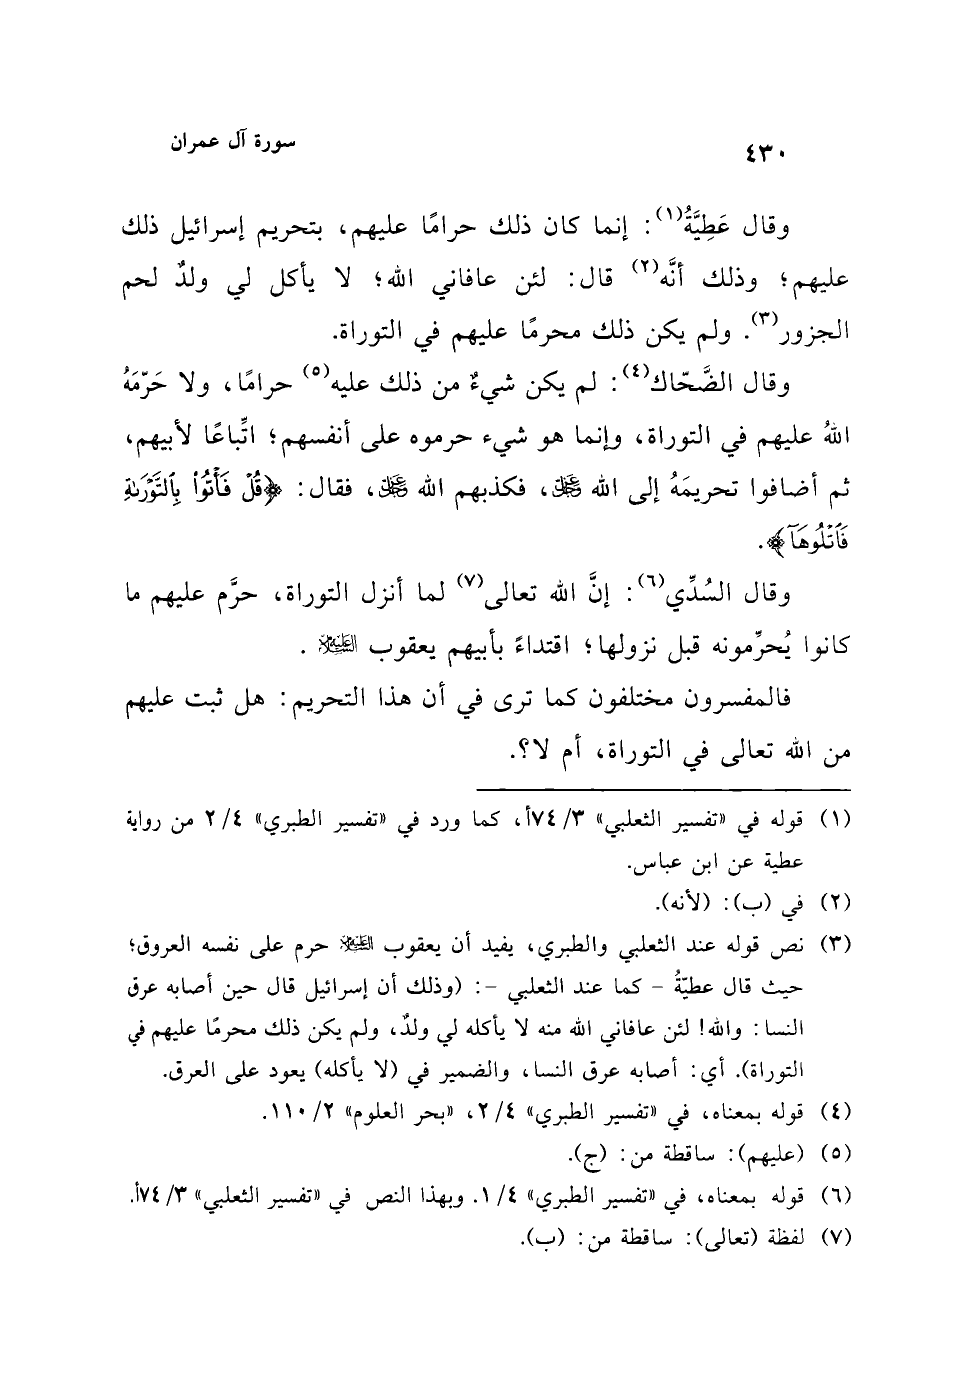 ٤٣٠
سورة آل عمران
وقال عَطِيَّةُ(١): إنما كان ذلك حرامًا عليهم، بتحريم إسرائيل ذلك
عليهم؛ وذلك أنَّه(٢) قال: لئن عافاني الله؛ لا يأكل لي ولدٌ لحم
الجزور(٣). ولم يكن ذلك محرمًا عليهم في التوراة.
وقال الضَّحّاك(٤): لم يكن شيءٌ من ذلك عليه(٥) حرامًا، ولا حَرّمَهُ
اللهُ عليهم في التوراة، وإنما هو شيء حرموه على أنفسهم؛ اتِّباعًا لأبيهم،
ثم أضافوا تحريمَهُ إلى الله ﷿، فكذبهم الله ﷿، فقال: ﴿قُلْ فَأْتُوا۟ بِٱلتَّوْرَىٰةِ
فَٱتْلُوهَآ﴾.
وقال السُدِّي(٦): إنَّ الله تعالى(٧) لما أنزل التوراة، حرَّم عليهم ما
كانوا يُحرِّمونه قبل نزولها؛ اقتداءً بأبيهم يعقوب عليه السلام .
فالمفسرون مختلفون كما ترى في أن هذا التحريم: هل ثبت عليهم
من الله تعالى في التوراة، أم لا؟.
(١) قوله في «تفسير الثعلبي» ٣/ ٧٤أ، كما ورد في «تفسير الطبري» ٤/ ٢ من رواية
عطية عن ابن عباس.
(٢) في (ب): (لأنه).
(٣) نص قوله عند الثعلبي والطبري، يفيد أن يعقوب عليه السلام حرم على نفسه العروق؛
حيث قال عطيّةُ - كما عند الثعلبي -: (وذلك أن إسرائيل قال حين أصابه عرق
النسا: والله! لئن عافاني الله منه لا يأكله لي ولدٌ، ولم يكن ذلك محرمًا عليهم في
التوراة). أي: أصابه عرق النسا، والضمير في (لا يأكله) يعود على العرق.
(٤) قوله بمعناه، في «تفسير الطبري» ٤/ ٢، «بحر العلوم» ٢/ ١١٠.
(٥) (عليهم): ساقطة من: (ج).
(٦) قوله بمعناه، في «تفسير الطبري» ٤/ ١. وبهذا النص في «تفسير الثعلبي» ٣/ ٧٤أ.
(٧) لفظة (تعالى): ساقطة من: (ب).